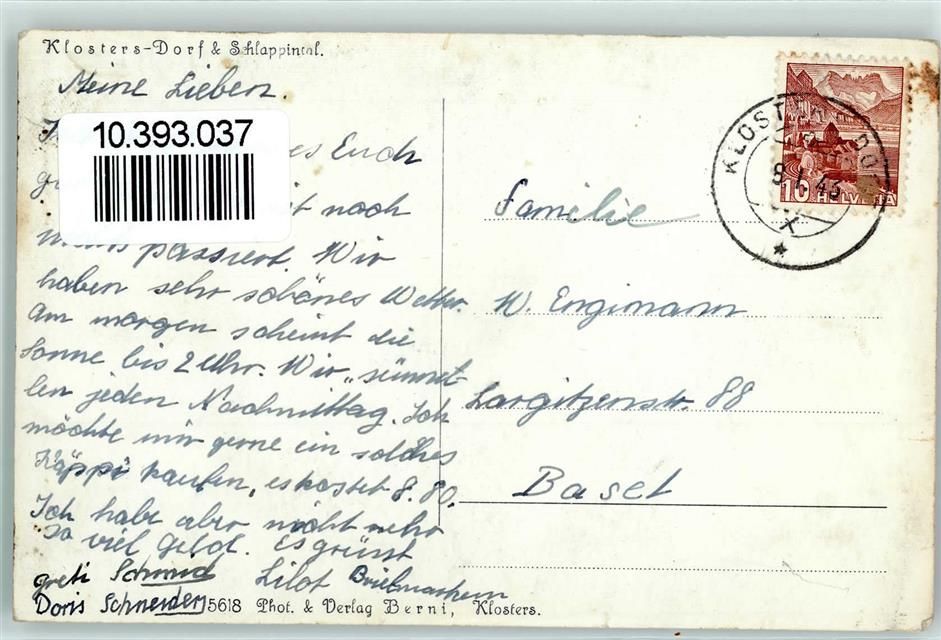 Klosters-Dorf & Schlappintal.
Meine Lieben
10.393.037
es Euch
nach
passiert. Wir
haben sehr schönes Wetter.
Am morgen scheint die
Sonne bis 2 Uhr. Wir „sünnel-
len jeden Nachmittag. Ich
möchte mir gerne ein solches
Käppi kaufen, es kostet 8.80.
Ich habe aber nicht mehr
so viel Geld. Es grüsst
Lilot
Greti Schmid
Briefmarken
Doris Schneider
5618 Phot. & Verlag Berni, Klosters.
Familie
W. Engimann
Largitzenstr. 88
Basel
10 HELVETIA